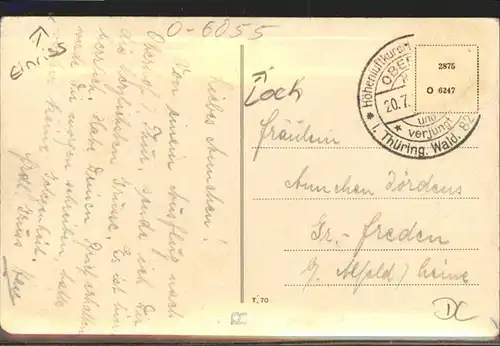 O-6055
Eins
Loch
Liebes Annchen!
Von einem Ausflug nach
Oberhof i. Thür. sende ich Dir
die herzlichsten Grüße. Es ist hier
herrlich. Habe Deinen Brief erhalten
werde Dir morgen schreiben, hatte
keine Gelegenheit.
Höhenluftkurort
OBER
20.7.
und
verjüngt
i. Thüring. Wald. 82
2875
O 6247
Fräulein
Annchen Jördens
Gr.-Freden
b/ Alfeld/Leine
T. 70
DC